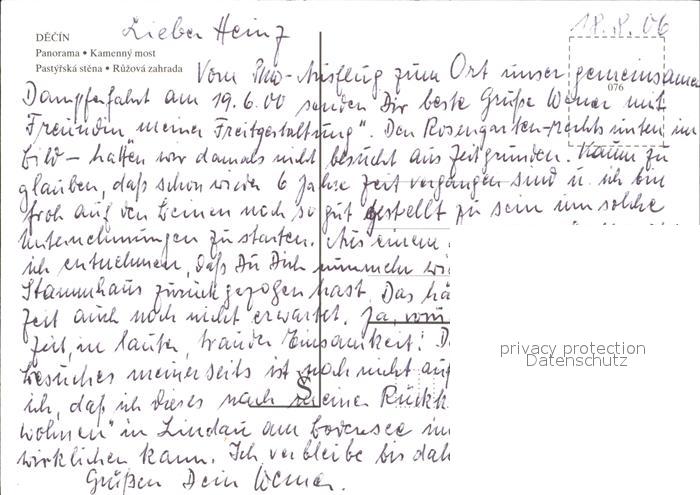 Lieber Heinz
18.8.06
DĚČÍN
Panorama • Kamenný most
Pastýřská stěna • Růžová zahrada
076
Vom Ausflug zum Ort unser gemeinsamen
Dampferfahrt am 19.6.00 senden Dir beste Grüße Werner mit
Freundin meiner Freitgestaltung". Den Rosengarten - rechts unten im
Bild - hatten wir damals nicht besucht aus Zeitgründen. Kaum zu
glauben, daß schon wieder 6 Jahre Zeit vergangen sind u. ich bin
froh auf den Beinen noch so gut gestellt zu sein um solche
Unternehmungen zu starten. Aus einem
ich entnehmen, daß Du Dich nunmehr
Stammhaus zurückgezogen hast. Das
Zeit auch noch nicht erwartet. Ja,
Zeit, in lauter, Einsamkeit!
Besuches meinerseits ist noch nicht
ich, daß ich dieses nach meiner
wohnen" in Lindau am Bodensee
wirklichen kann. Ich verbleibe bis
Grüßen Dein Werner.
privacy protection
Datenschutz